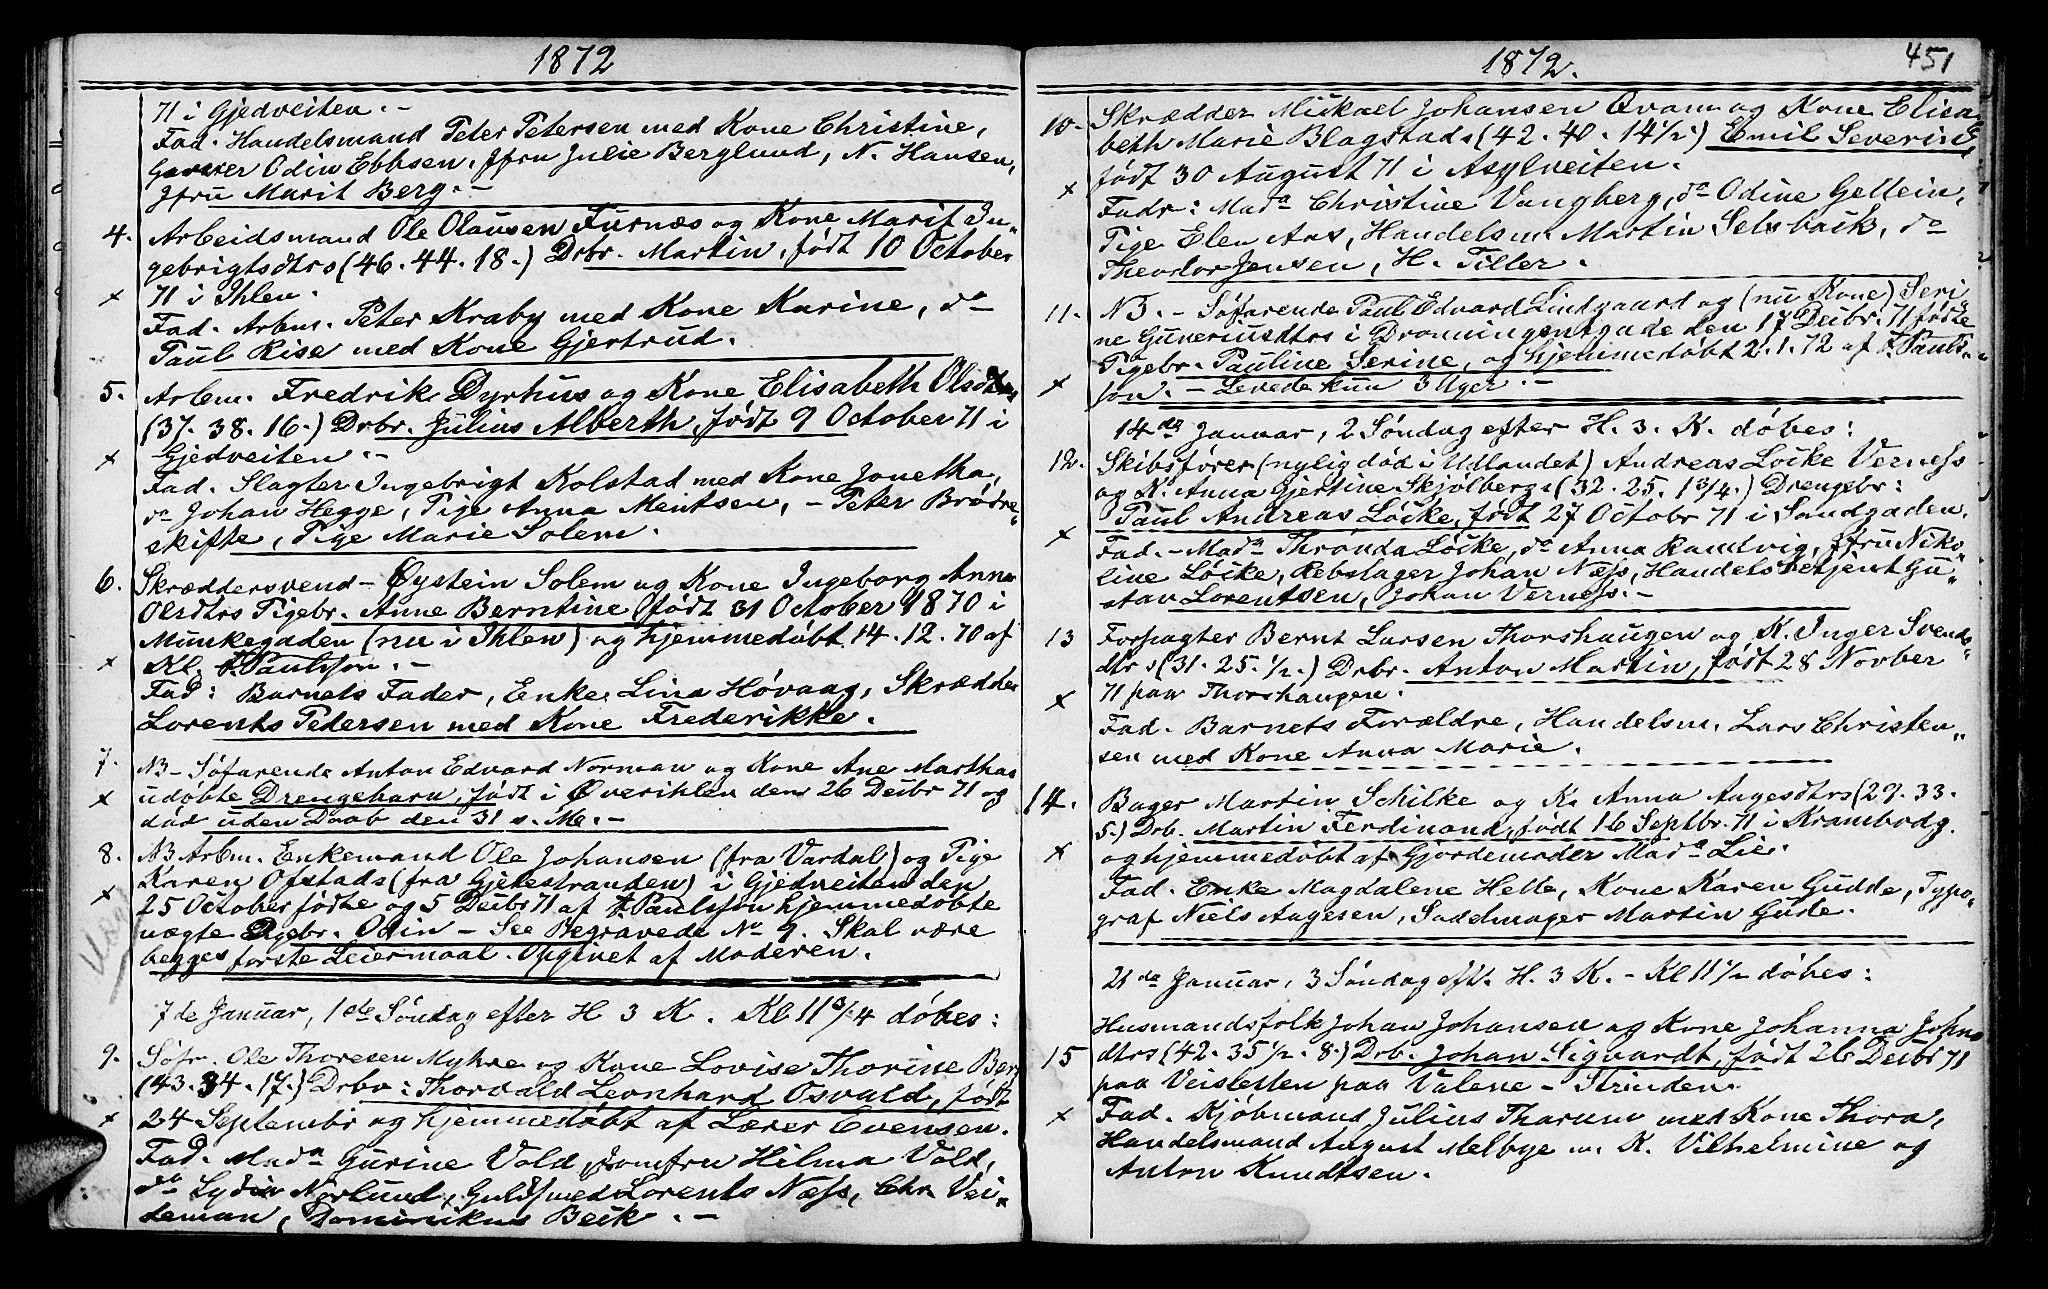 1872
71 i Gjedveiten. -
Fad. Handelsmand Peter Petersen med Kone Christine,
Garver Odin Ebbsen, Jfru Julie Berglund, N. Hansen,
Jfru Marit Berg. -
4. Arbeidsmand Ole Olausen Furnæs og Kone Marit In-
gebrigtsdtrs (46. 44. 18.) Drbr. Martin, født 10 October
x 71 i Ihlen.
Fad. Arbm. Peter Kraby med Kone Karine, do
Paul Rise med Kone Gjertrud.
5. Arbm. Fredrik Dyrhus og Kone Elisabeth Olsdtrs
(37. 38. 16.) Drbr. Julius Alberth, født 9 October 71 i
x Gjedveiten. -
Fad. Slagter Ingebrigt Kolstad med Kone Jonetha,
do Johan Hegge, Pige Anna Mentsen, - Peter Brødre-
skifte, Pige Marie Solem.
6. Skræddersvend - Øystein Solem og Kone Ingeborg Anna
Olsdtrs Pigebr. Anne Berntine født 31 October 1870 i
Munkegaden (nu i Ihlen) og hjemmedøbt 14.12.70 af
x Kl. F. Paulsson. -
Fad: Barnets Fader, Enke Lina Høvaag, Skrædder
Lorents Pedersen med Kone Frederikke.
7. NB - Søfarende Anton Edvard Norman og Kone Ane Marthas
x udøbte Drengebarn, født i Øvreihlen den 26 Decbr 71 og
død uden Daab den 31 s. M. -
8. NB Arbm. Enkemand Ole Johansen (fra Vardal) og Pige
Karen Ofstads (fra Gjetestranden) i Gjedveiten den
x 25 October fødte og 5 Decbr 71 af F. Paulsson hjemmedøbte
uægte Drgebr. Odin - See Begravede No 9. Skal være
begges første Leiermaal. Opgivet af Moderen.
7de Januar, 1de Søndag efter H 3 K. Kl 11 3/4 døbes:
9. Søfr. Ole Thoresen Myhre og Kone Lovise Thorine Berg
(43. 34. 17.) Drbr: Thorvald Leonhard Osvald, født
x 24 Septembr og hjemmedøbt af Lærer Evensen.
Fad. Mada Gurine Vold, Jomfru Hilma Vold,
do Lydia Norlund, Guldsmed Lorents Næss, Chr. Vei-
deman, Dominikus Beck. -
1872. 451
10. Skrædder Mickael Johansen Qvam og Kone Elisa-
beth Marie Blagstads (42. 40. 14½) Emil Severin E,
x født 30 August 71 i Asylveiten.
Fadr: Mada Christine Vangberg, do Odine Gellein,
Pige Elen Aas, Handelsm. Martin Selsback, do
Theodor Jensen, H. Tiller.
11. NB. - Søfarende Paul Edvard Lindgaard og (nu Kone) Seri-
ne Guneriusdtrs i Dronningensgade den 17 Decbr. 71 fødte
Pigebr. Pauline Serine, og hjemmedøbt 2.1.72 af F. Pauls-
x son. - Levede kun 3 Uger. -
14de Januar, 2 Søndag efter H. 3. K. døbes:
12. Skibsfører (nylig død i Udlandet) Andreas Løcke Verness
og K. Anna Gjertine Skjølbergs (32. 25. 1¾.) Drengebr:
Paul Andreas Løcke, født 27 Octobr 71 i Sandgaden.
x Fad. - Mada Thrønda Løcke, do Anna Randvig, Jfru Niko-
line Løcke, Rebslager Johan Næss, Handelsbetjent Gu-
stav Lorentsen, Johan Verness. -
13 Forpagter Bernt Larsen Thorshaugen og K. Inger Svends-
dtrs (31. 25. ½.) Drbr. Anton Martin, født 28 Novber
x 71 paa Thorshaugen.
Fad. Barnets Forældre, Handelsm. Lars Christen-
sen med Kone Anna Marie.
14. Bager Martin Schilke og K. Anna Aagesdtrs (29. 33.
5.) Drb. Martin Ferdinand, født 16 Septbr. 71 i Krambodg.
x og hjemmedøbt af Gjordemoder Mada Lie.
Fad. Enke Magdalene Helle, Kone Karen Gudde, Typo-
graf Niels Aagesen, Sadelmager Martin Gude.
21de Januar, 3 Søndag eft. H. 3 K. - Kl 11½ døbes:
Husmandsfolk Johan Johansen og Kone Johanna Johns-
15 dtrs (42. 35½. 8.) Drb. Johan Sigvardt, født 26 Decbr 71
paa Veisletten paa Valene - Strinden.
x Fad. Kjøbmand Julius Tharum med Kone Thora,
Handelsmand August Melbye m. K. Vilhelmine og
Anton Knudtsen.